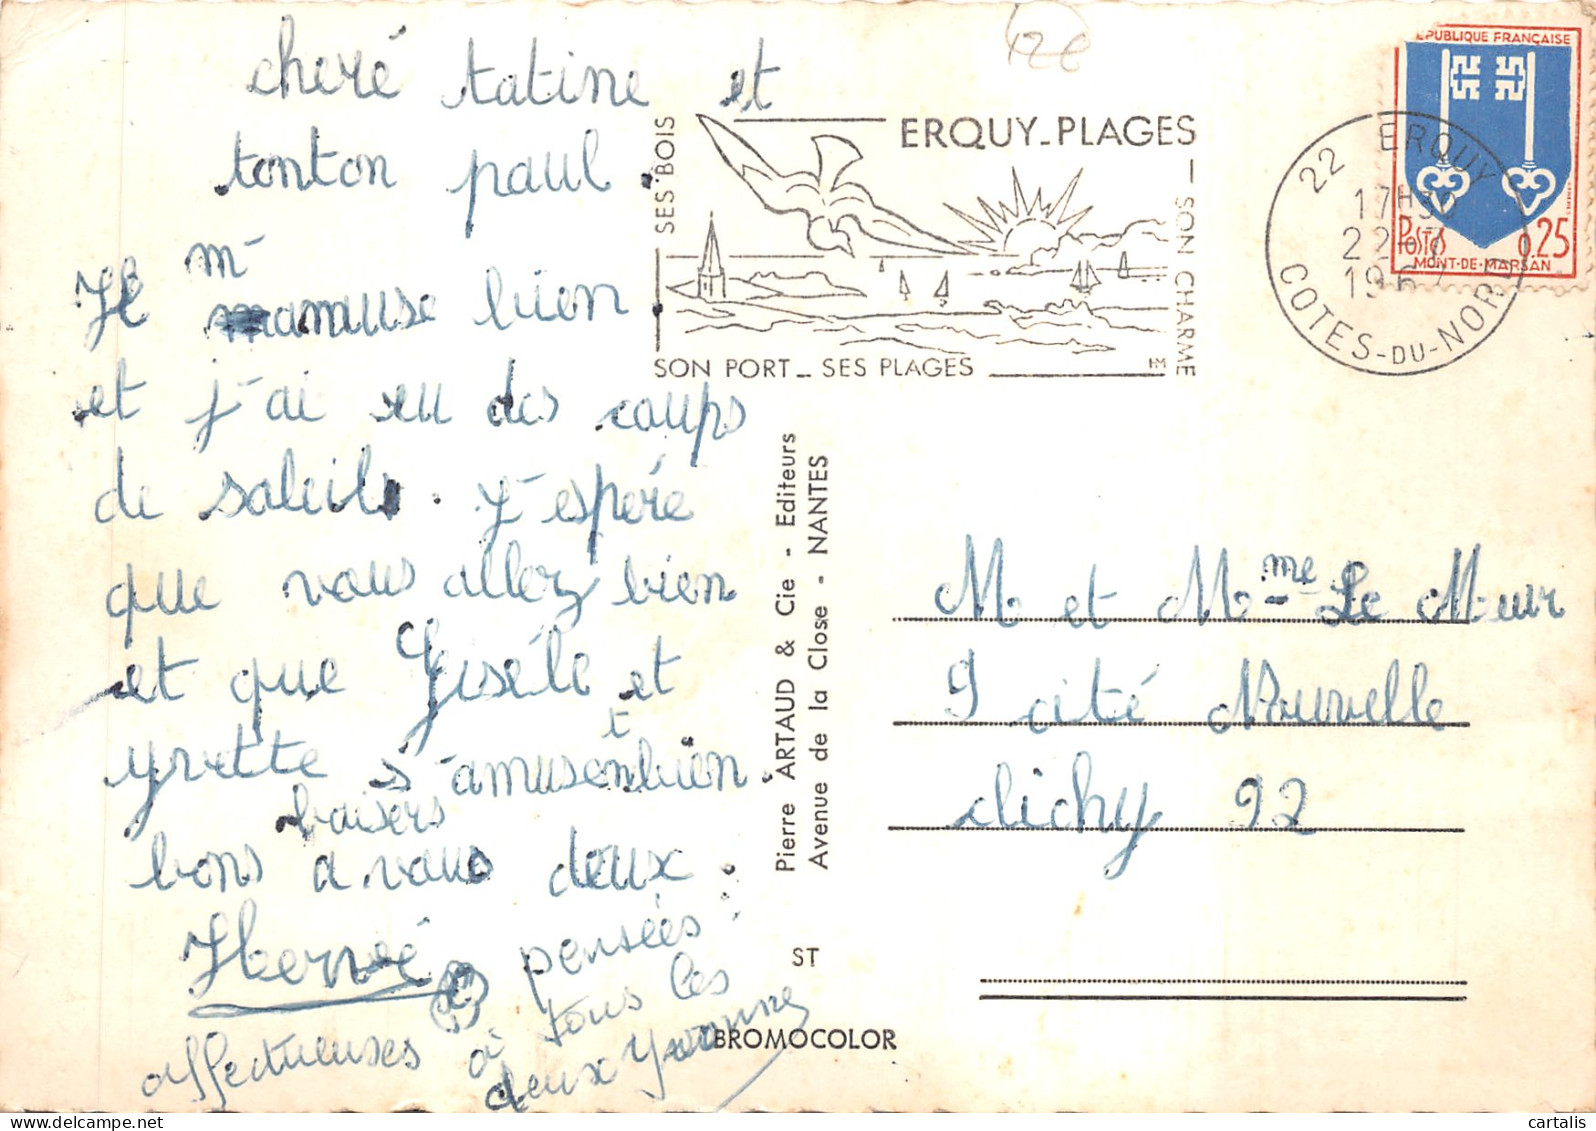 cheré tatine et
tonton paul.
Je m-
amuse bien
et j-ai eu des coups
de soleil. J-espére
que vous allez bien
et que Giséle et
yvette s-amusent bien
bons baisers a vous deux.
Hervé
pensées
affectueuses à tous les
deux Yvonne
12€
ERQUY_PLAGES
SES BOIS
SON CHARME
SON PORT _ SES PLAGES
22 ERQUY
17H30
22-7
196
COTES-DU-NORD
RÉPUBLIQUE FRANÇAISE
POSTES
0,25
MONT-DE-MARSAN
Pierre ARTAUD & Cie - Editeurs
Avenue de la Close - NANTES
M et Mme Le Meur
9 cité Nouvelle
clichy 92
ST
BROMOCOLOR
www.delcampe.net
cartalis